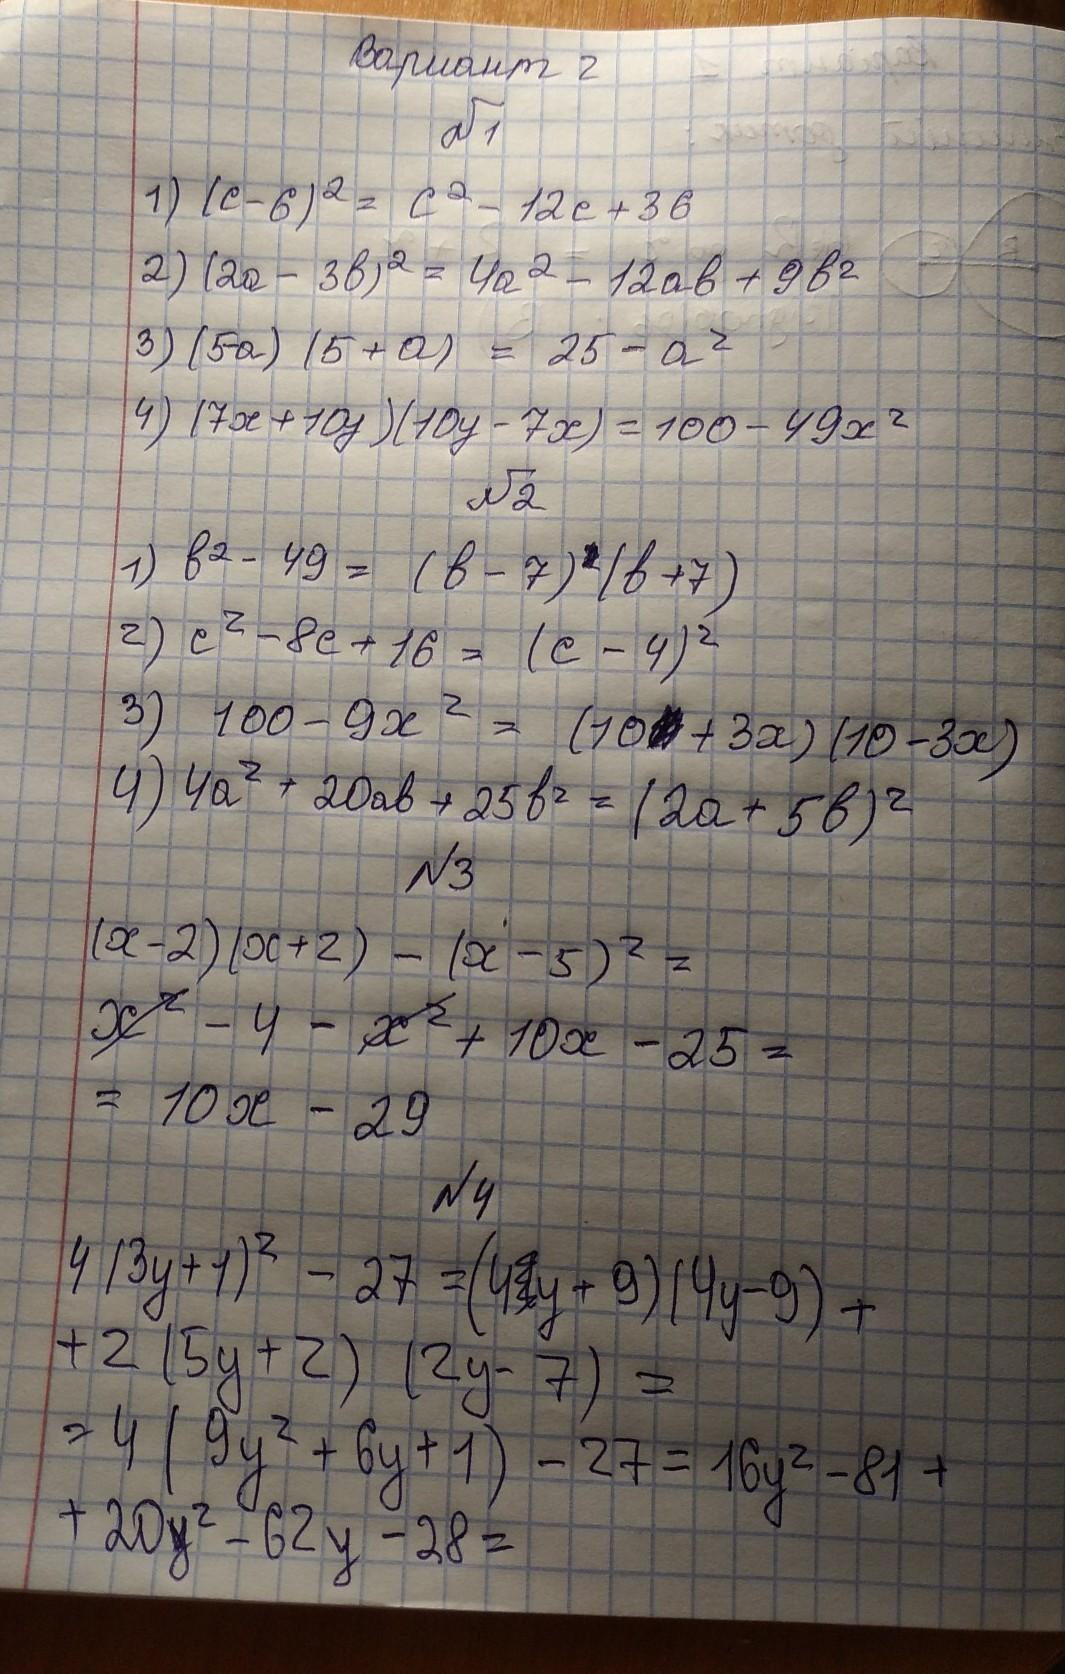 Вариант 2
№1
1) (c-6)² = c² - 12c + 36
2) (2a - 3b)² = 4a² - 12ab + 9b²
3) (5a) (5 + a) = 25 - a²
4) (7x + 10y)(10y - 7x) = 100 - 49x²
№2
1) b² - 49 = (b - 7)(b + 7)
2) c² - 8c + 16 = (c - 4)²
3) 100 - 9x² = (10 + 3x)(10 - 3x)
4) 4a² + 20ab + 25b² = (2a + 5b)²
№3
(x-2)(x+2) - (x - 5)² =
x² - 4 - x² + 10x - 25 =
= 10x - 29
№4
4(3y+1)² - 27 = (4y + 9)(4y - 9) +
+ 2(5y + 2) (2y - 7) =
= 4(9y² + 6y + 1) - 27 = 16y² - 81 +
+ 20y² - 62y - 28 =